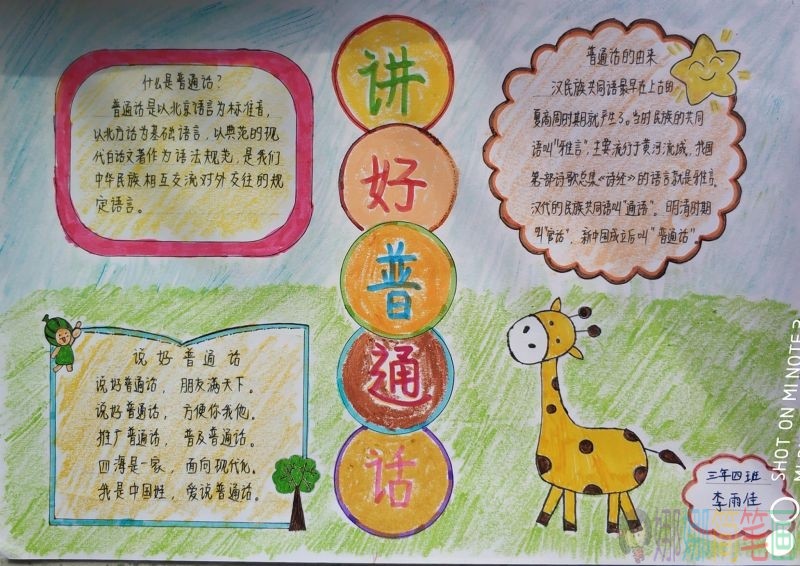 讲
好
普
通
话
什么是普通话?
普通话是以北京语言为标准音,
以北方话为基础语言,以典范的现
代白话文著作为语法规范,是我们
中华民族相互交流对外交往的规
定语言。
普通话的由来
汉民族共同语最早在上古的
夏商周时期就产生了。当时民族的共同
语叫“雅言”,主要流行于黄河流域,我国
第一部诗歌总集《诗经》的语言就是雅言。
汉代的民族共同语叫“通语”。明清时期
叫“官话”,新中国成立后叫“普通话”。
说好普通话
说好普通话,朋友满天下。
说好普通话,方便你我他。
推广普通话,普及普通话。
四海是一家,面向现代化。
我是中国娃,爱说普通话。
三年四班
李雨佳
SHOT ON MI NOTE 3